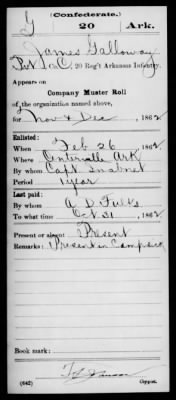 (Confederate.)
G 20 Ark.
James Galloway
Pvt, Co. C, 20 Reg't Arkansas Infantry.
Appears on
Company Muster Roll
of the organization named above,
for Nov & Dec, 1862
Enlisted:
When Feb 26, 1862
Where Centerville Ark
By whom Capt
Period 1 year
Last paid:
By whom A. D. Fulks
To what time Oct 31, 1862
Present or absent Present
Remarks: Present in Camp sick
Book mark:
(642) Copyist.